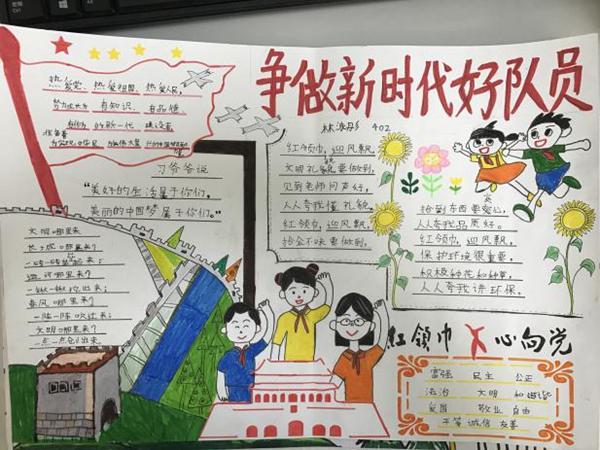 争做新时代好队员
402
热爱党、热爱祖国、热爱人民,
努力成长为 有知识、有品德、
的新一代 建设者
准备着
习爷爷说
“美好的生活属于你们,
美丽的中国梦属于你们。”
文明哪里来
长城哪里来?
一砖一砖垒出来;
运河哪里来?
一锹一锹挖出来;
春风哪里来?
一阵一阵吹过来;
文明哪里来?
一点一点创出来
红领巾,迎风飘,
文明礼貌要做到,
见到老师问声好,
人人夸我懂礼貌
红领巾,迎风飘,
拾金不昧要做到,
拾到东西要爱心,
人人夸我品质好。
红领巾,迎风飘,
保护环境很重要,
积极种花和种草,
人人夸我讲环保。
红领巾 心向党
富强 民主 公正
法治 文明 和谐
爱国 敬业 自由
平等 诚信 友善